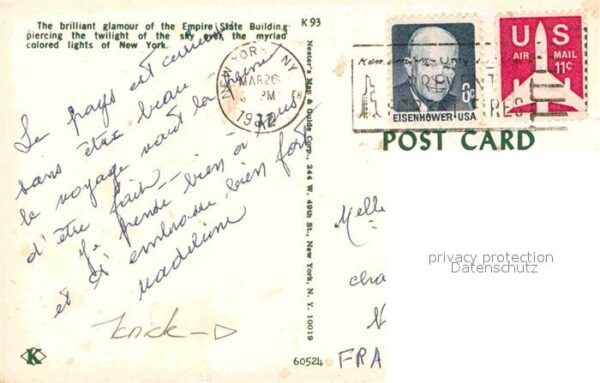 The brilliant glamour of the Empire State Building
piercing the twilight of the sky over the myriad
colored lights of New York.
K 93
Le pays est curieux
sans être beau -
le voyage vaut la peine
d'être fait --
Je pense bien à vous
et t'embrasse bien fort
Madeleine
Nester's Map & Guide Corp., 244 W. 49th St., New York, N. Y. 10019
NEW YORK, NY
MAR 26
PM
1972
PREVENT
FIRES
6c
EISENHOWER·USA
US
AIR MAIL
11¢
POST CARD
Melle
privacy protection
Datenschutz
FRA
K
60524